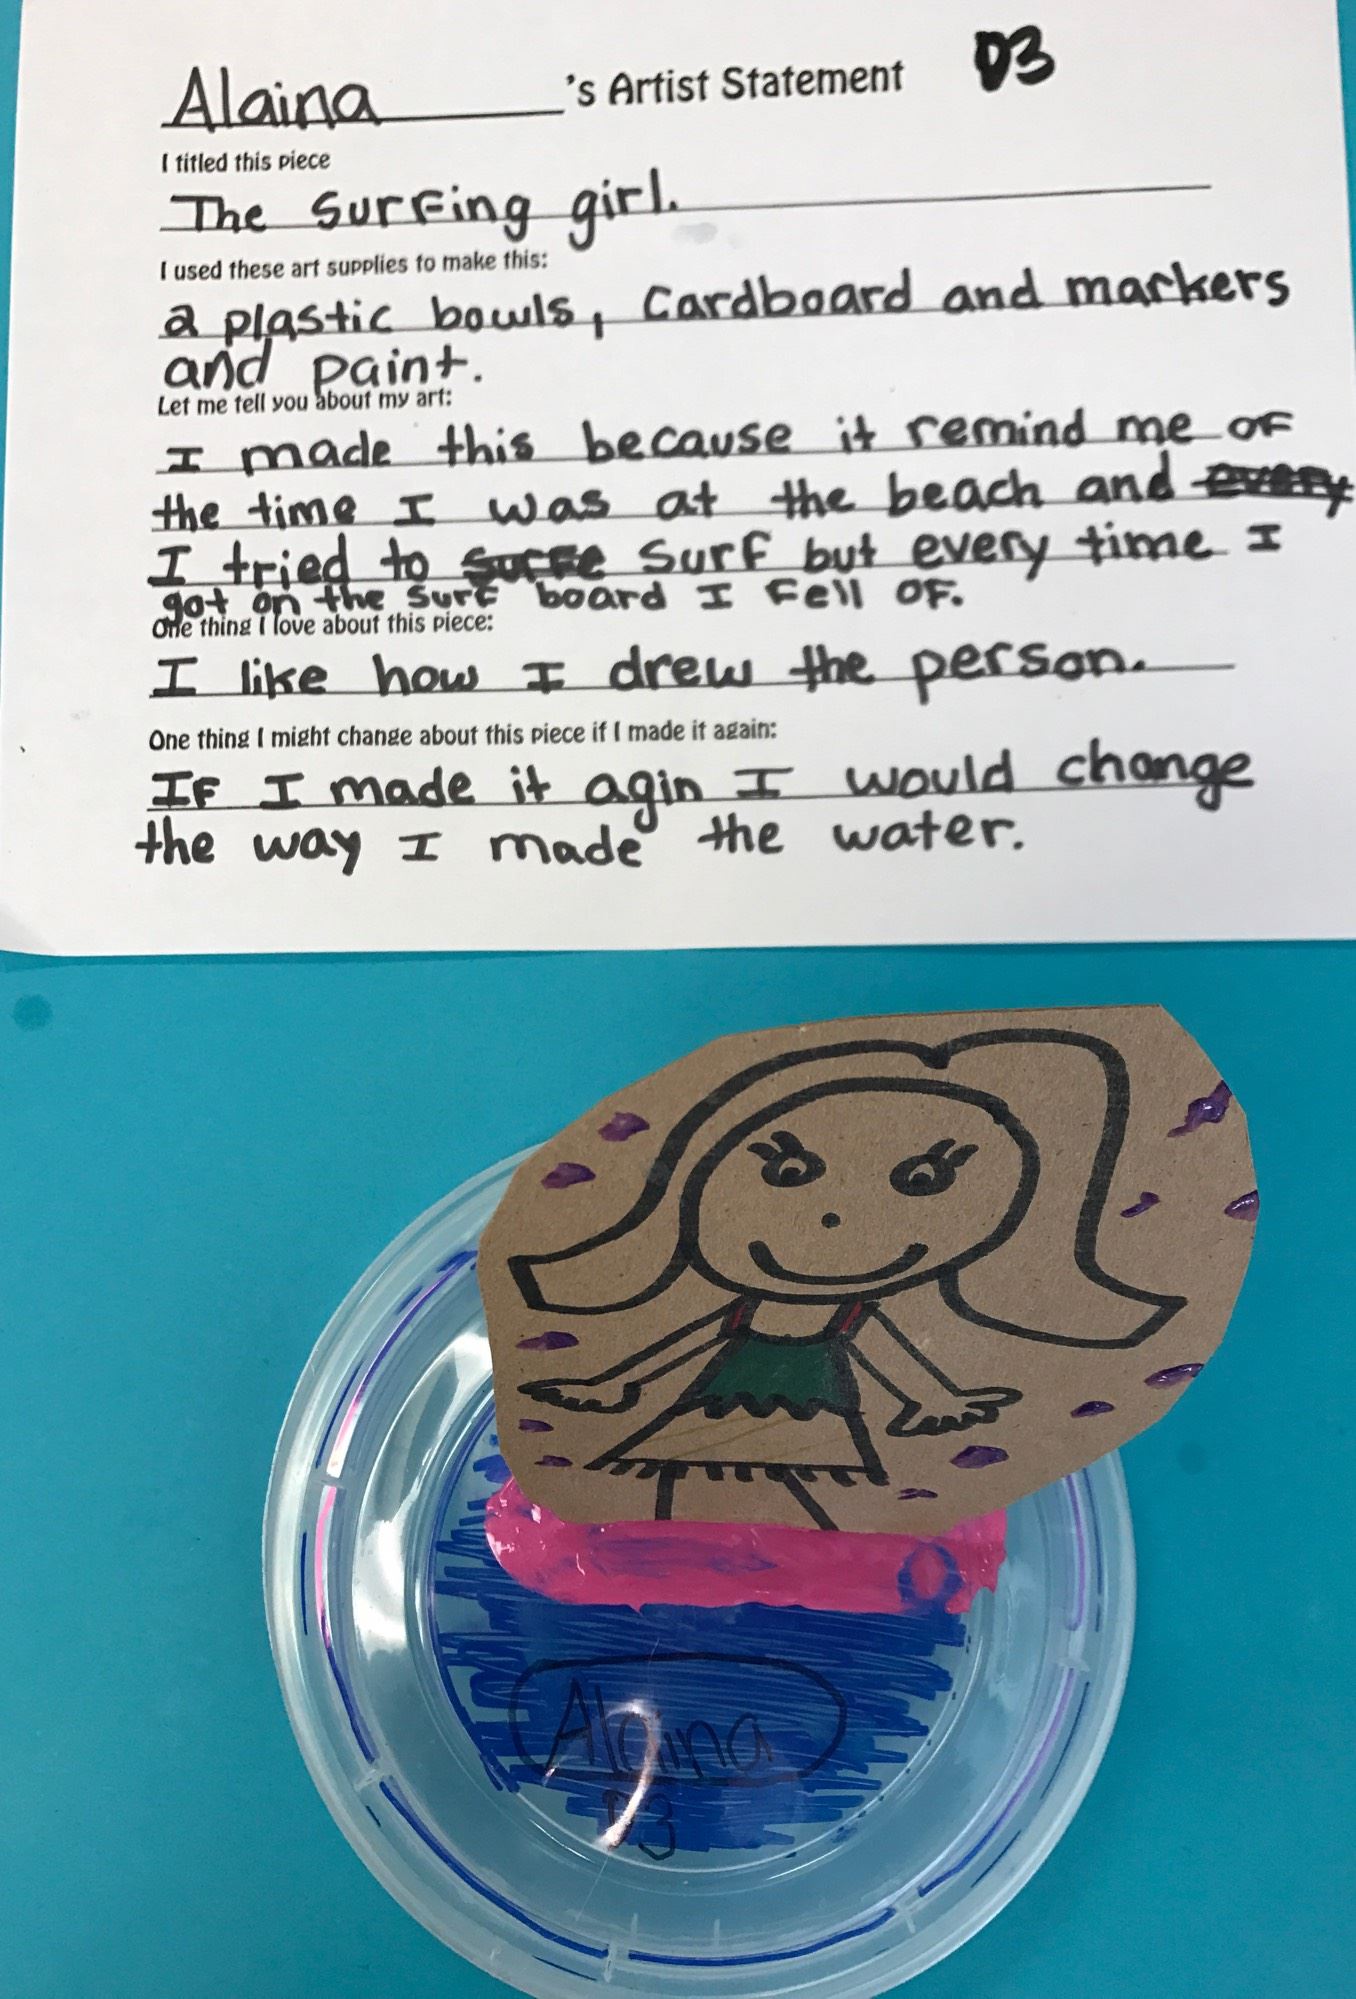 Alaina 's Artist Statement D3
I titled this piece
The surfing girl.
I used these art supplies to make this:
a plastic bowls, Cardboard and markers
and paint.
Let me tell you about my art:
I made this because it remind me of
the time I was at the beach and every
I tried to surfe surf but every time I
got on the surf board I fell of.
One thing I love about this piece:
I like how I drew the person.
One thing I might change about this piece if I made it again:
If I made it agin I would change
the way I made the water.
Alaina
D3